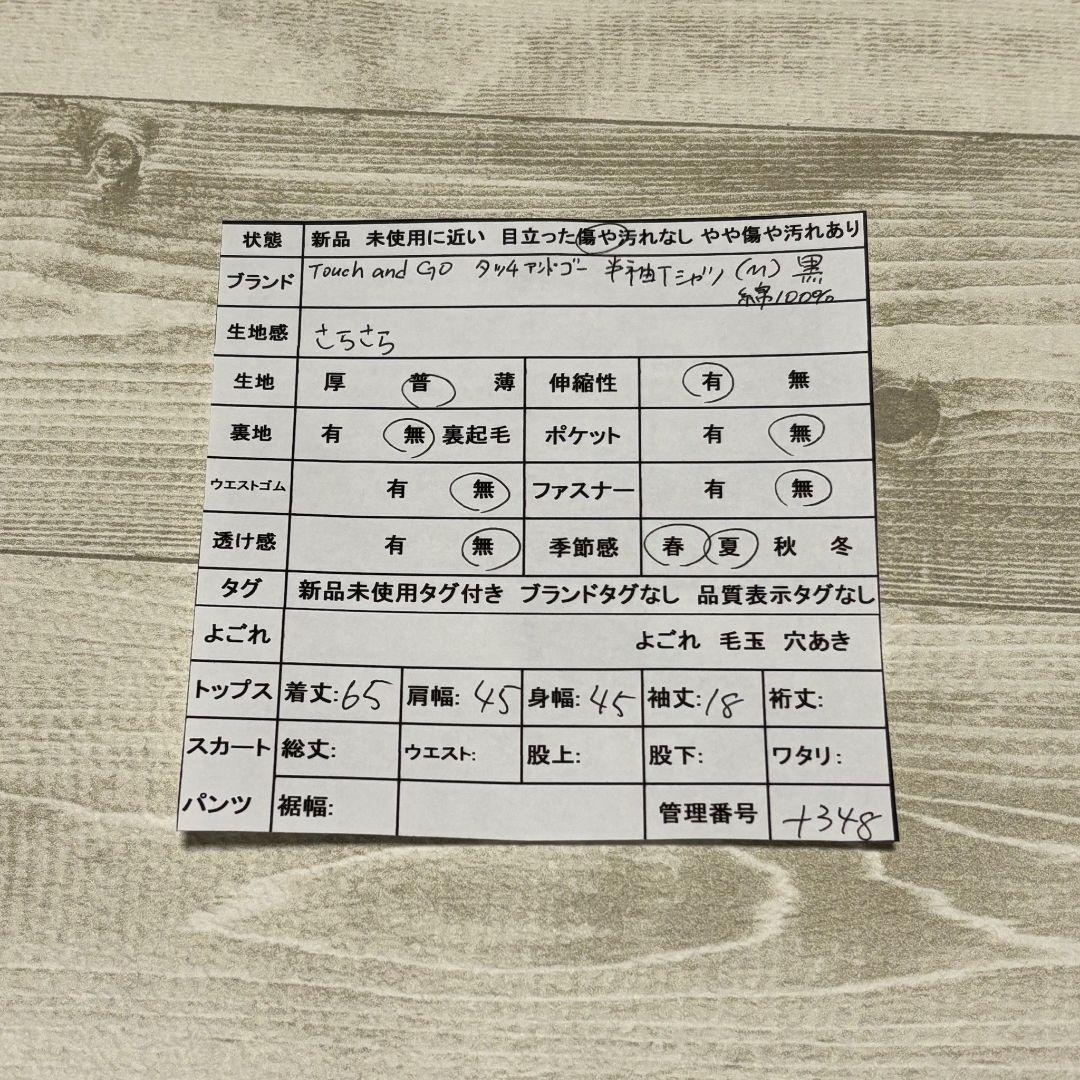 状態 新品 未使用に近い 目立った傷や汚れなし やや傷や汚れあり
ブランド Touch and GO タッチアンド・ゴー 半袖Tシャツ (M) 黒
綿100%
生地感 さらさら
生地 厚 普 薄 伸縮性 有 無
裏地 有 無 裏起毛 ポケット 有 無
ウエストゴム 有 無 ファスナー 有 無
透け感 有 無 季節感 春 夏 秋 冬
タグ 新品未使用タグ付き ブランドタグなし 品質表示タグなし
よごれ よごれ 毛玉 穴あき
トップス 着丈:65 肩幅:45 身幅:45 袖丈:18 裄丈:
スカート 総丈: ウエスト: 股上: 股下: ワタリ:
パンツ 裾幅: 管理番号 +348